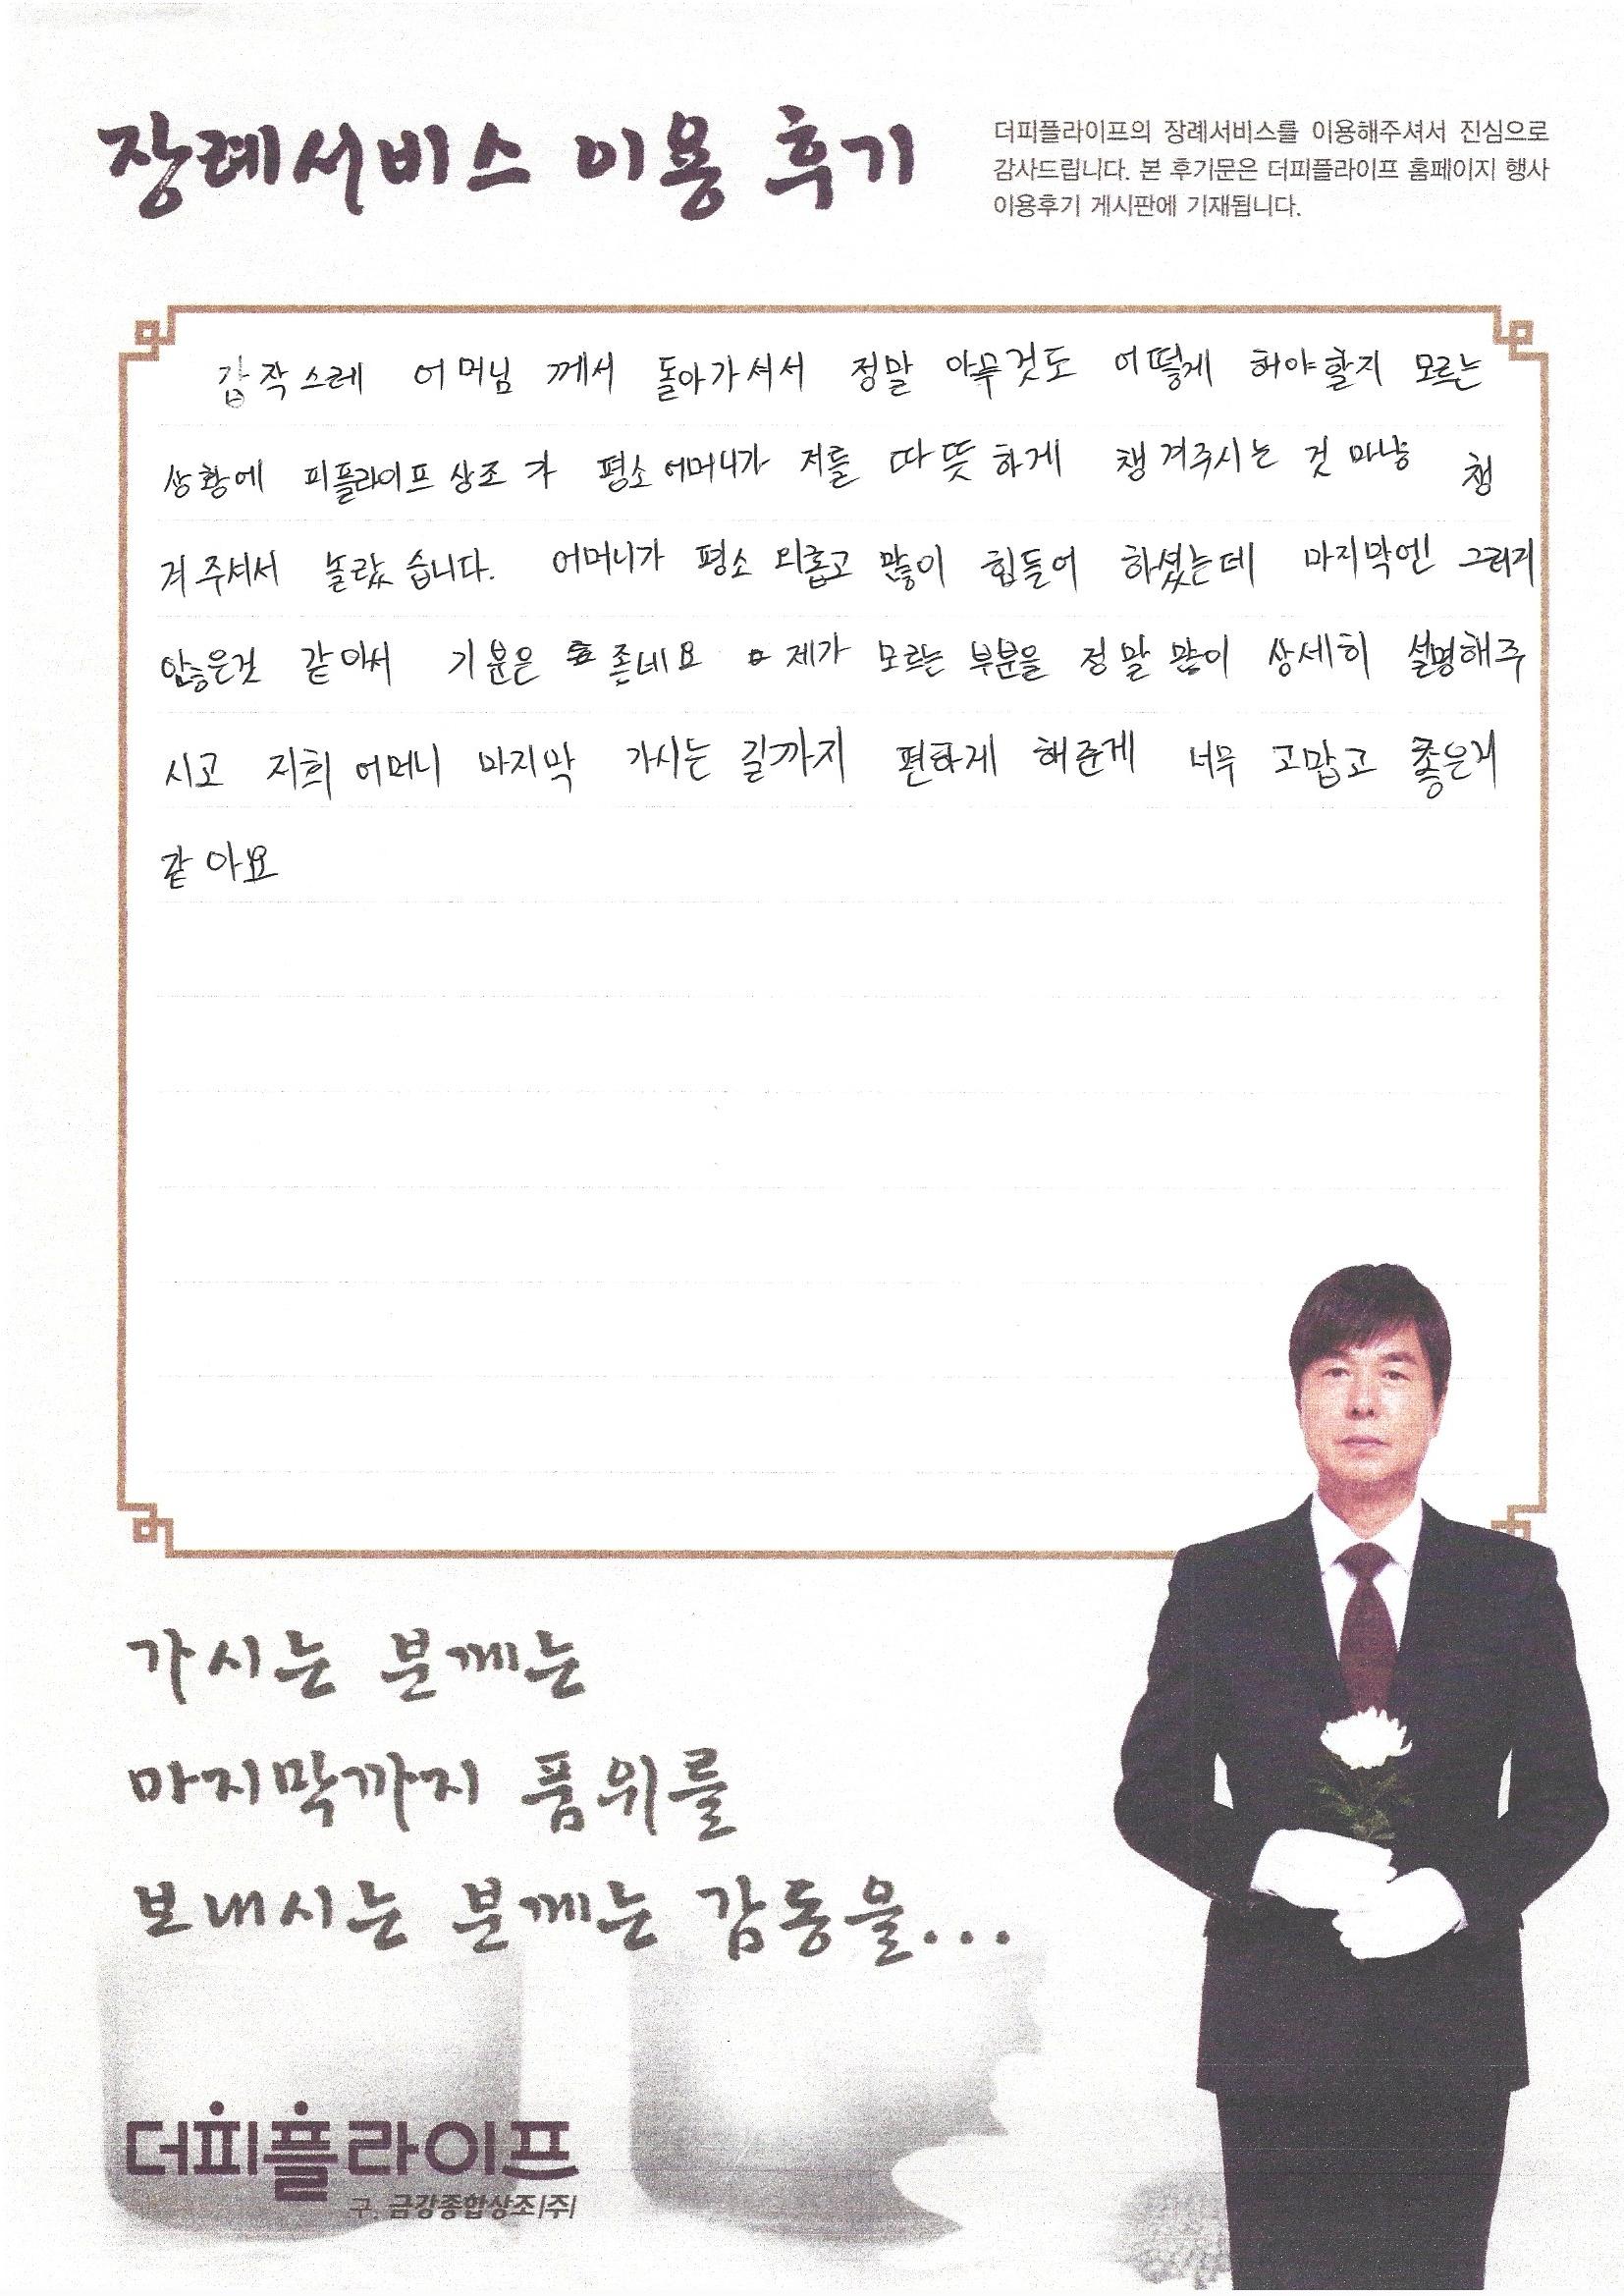 장례서비스 이용 후기
더피플라이프의 장례서비스를 이용해주셔서 진심으로
감사드립니다. 본 후기문은 더피플라이프 홈페이지 행사
이용후기 게시판에 기재됩니다.
갑작스레 어머님 께서 돌아가셔서 정말 아무것도 어떻게 해야할지 모르는
상황에 피플라이프 상조 가 평소 어머니가 저를 따뜻하게 챙겨주시는 것 마냥 챙
겨주셔서 놀랐습니다. 어머니가 평소 외롭고 많이 힘들어 하셨는데 마지막엔 그러지
않은것 같아서 기분은 좋네요 제가 모르는 부분을 정말 많이 상세히 설명해주
시고 저희 어머니 마지막 가시는 길까지 편하게 해준게 너무 고맙고 좋은거
같아요
가시는 분께는
마지막까지 품위를
보내시는 분께는 감동을...
더피플라이프
구. 금강종합상조(주)